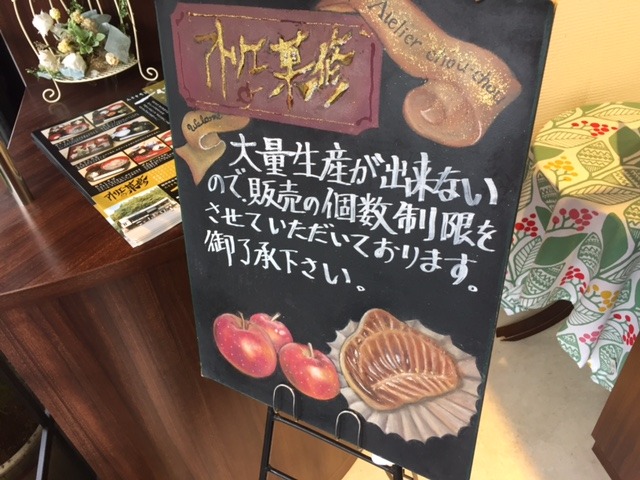 アトリエ
菓修
Atelier chou-chou
Welcome
大量生産が出来ない
ので、販売の個数制限を
させていただいております。
御了承下さい。